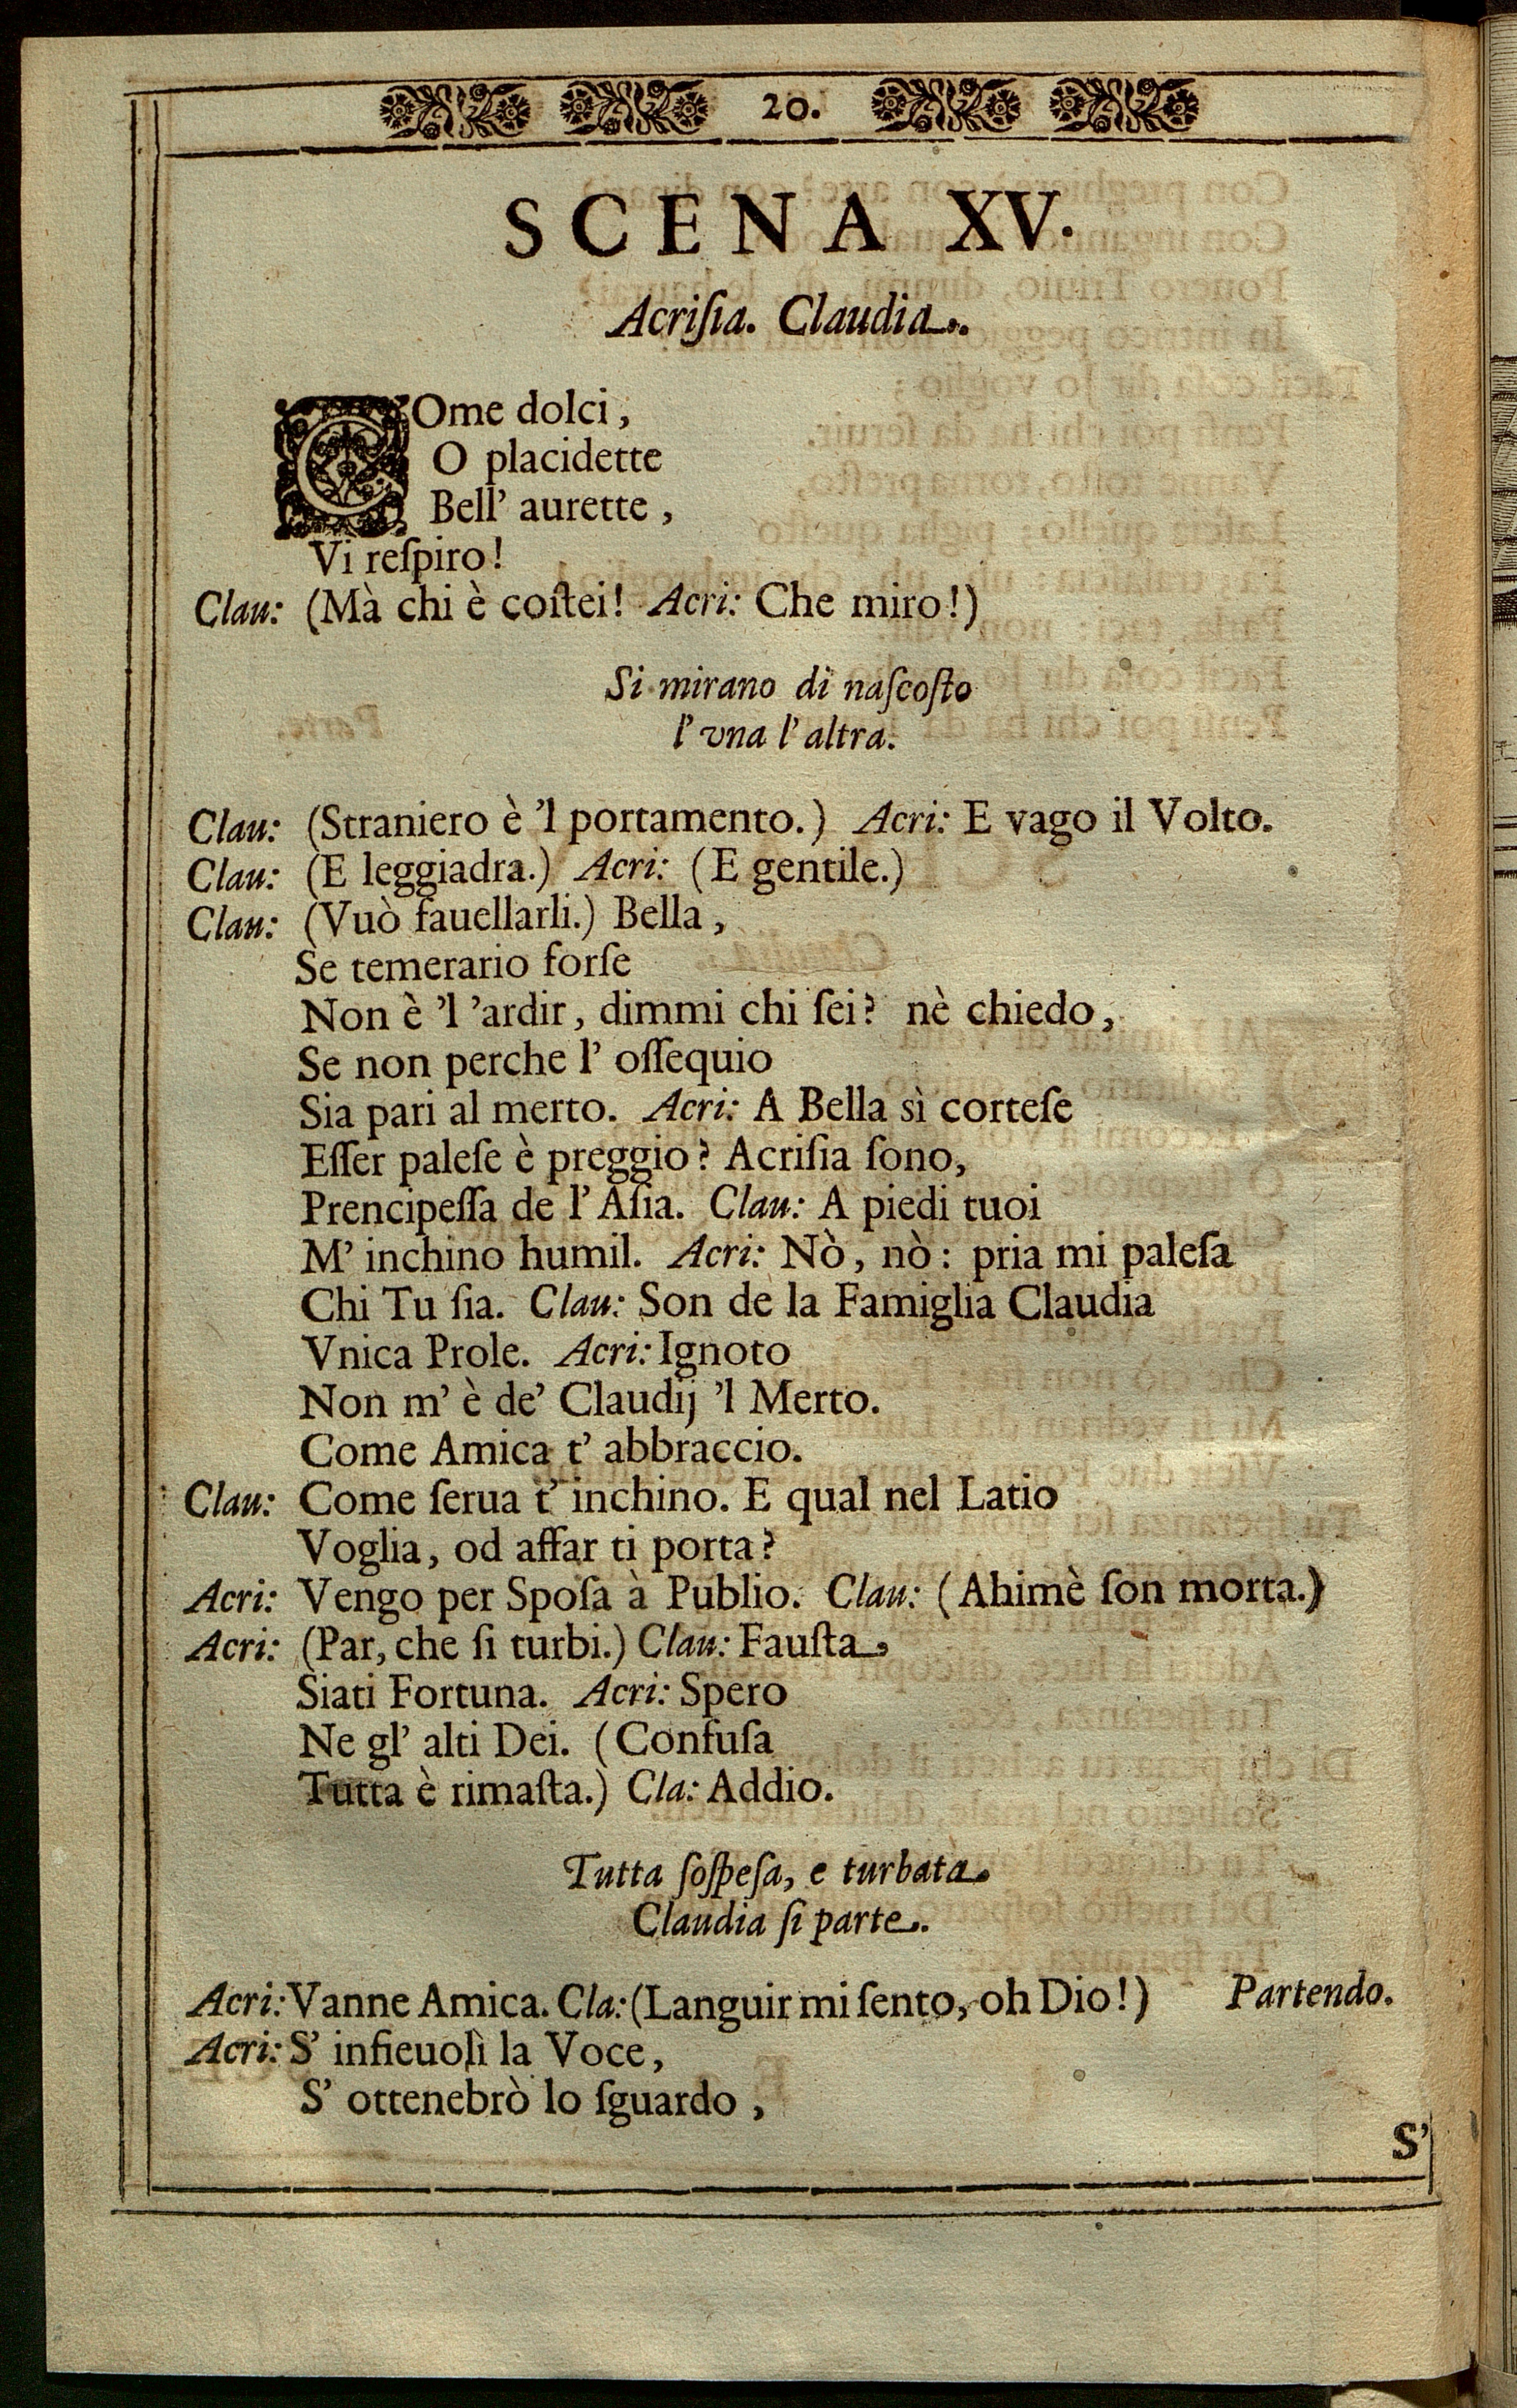 20.
SCENA XV.
Acriſia. Claudia.
COme dolci,
O placidette
Bell' aurette,
Vi reſpiro!
Clau: (Mà chi è coſtei! Acri: Che miro!)
Si mirano di naſcoſto
l' vna l' altra.
Clau: (Straniero è 'l portamento.) Acri: E vago il Volto.
Clau: (E leggiadra.) Acri: (E gentile.)
Clau: (Vuò fauellarli.) Bella,
Se temerario forſe
Non è 'l 'ardir, dimmi chi ſei? nè chiedo,
Se non perche l' oſſequio
Sia pari al merto. Acri: A Bella sì corteſe
Eſſer paleſe è preggio? Acriſia ſono,
Prencipeſſa de l' Aſia. Clau: A piedi tuoi
M' inchino humil. Acri: Nò, nò: pria mi paleſa
Chi Tu ſia. Clau: Son de la Famiglia Claudia
Vnica Prole. Acri: Ignoto
Non m' è de' Claudij 'l Merto.
Come Amica t' abbraccio.
Clau: Come ſerua t' inchino. E qual nel Latio
Voglia, od affar ti porta?
Acri: Vengo per Spoſa à Publio. Clau: (Ahimè ſon morta.)
Acri: (Par, che ſi turbi.) Clau: Fauſta,
Siati Fortuna. Acri: Spero
Ne gl' alti Dei. (Confuſa
Tutta è rimaſta.) Cla: Addio.
Tutta ſoſpeſa, e turbata.
Claudia ſi parte.
Acri: Vanne Amica. Cla: (Languir mi ſento, oh Dio!) Partendo.
Acri: S' infieuolì la Voce,
S' ottenebrò lo ſguardo,
S'